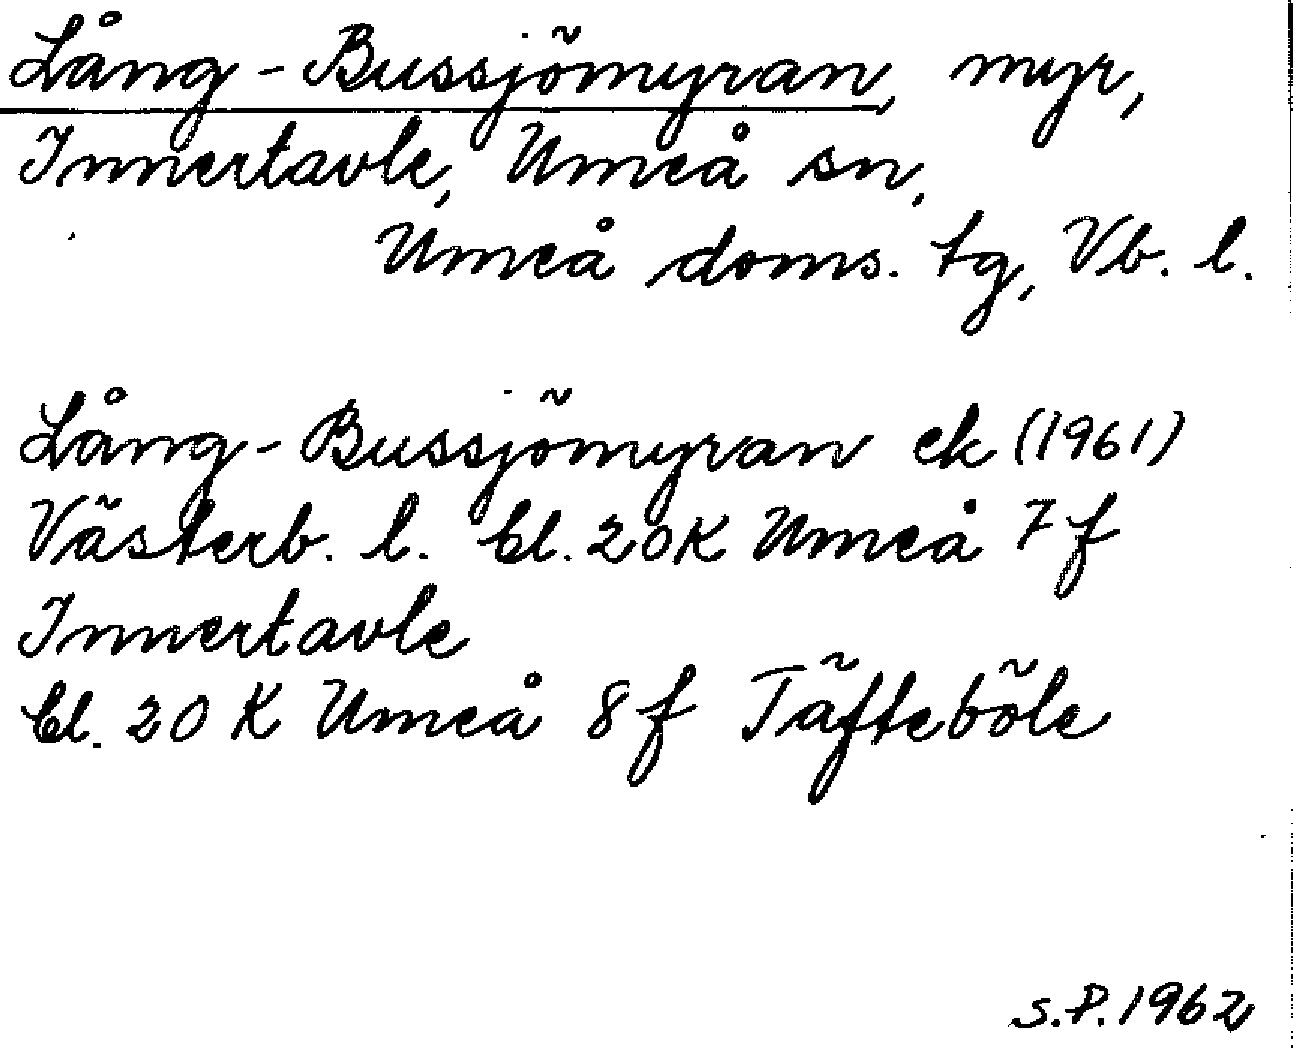 Lång-Bussjömyran, myr,
Innertavle, Umeå sn,
Umeå doms. tg, Vb. l.
Lång-Bussjömyran ek (1961)
Västerb. l. bl. 20K Umeå 7f
Innertavle
bl. 20K Umeå 8f Täfteböle
S.P. 1962